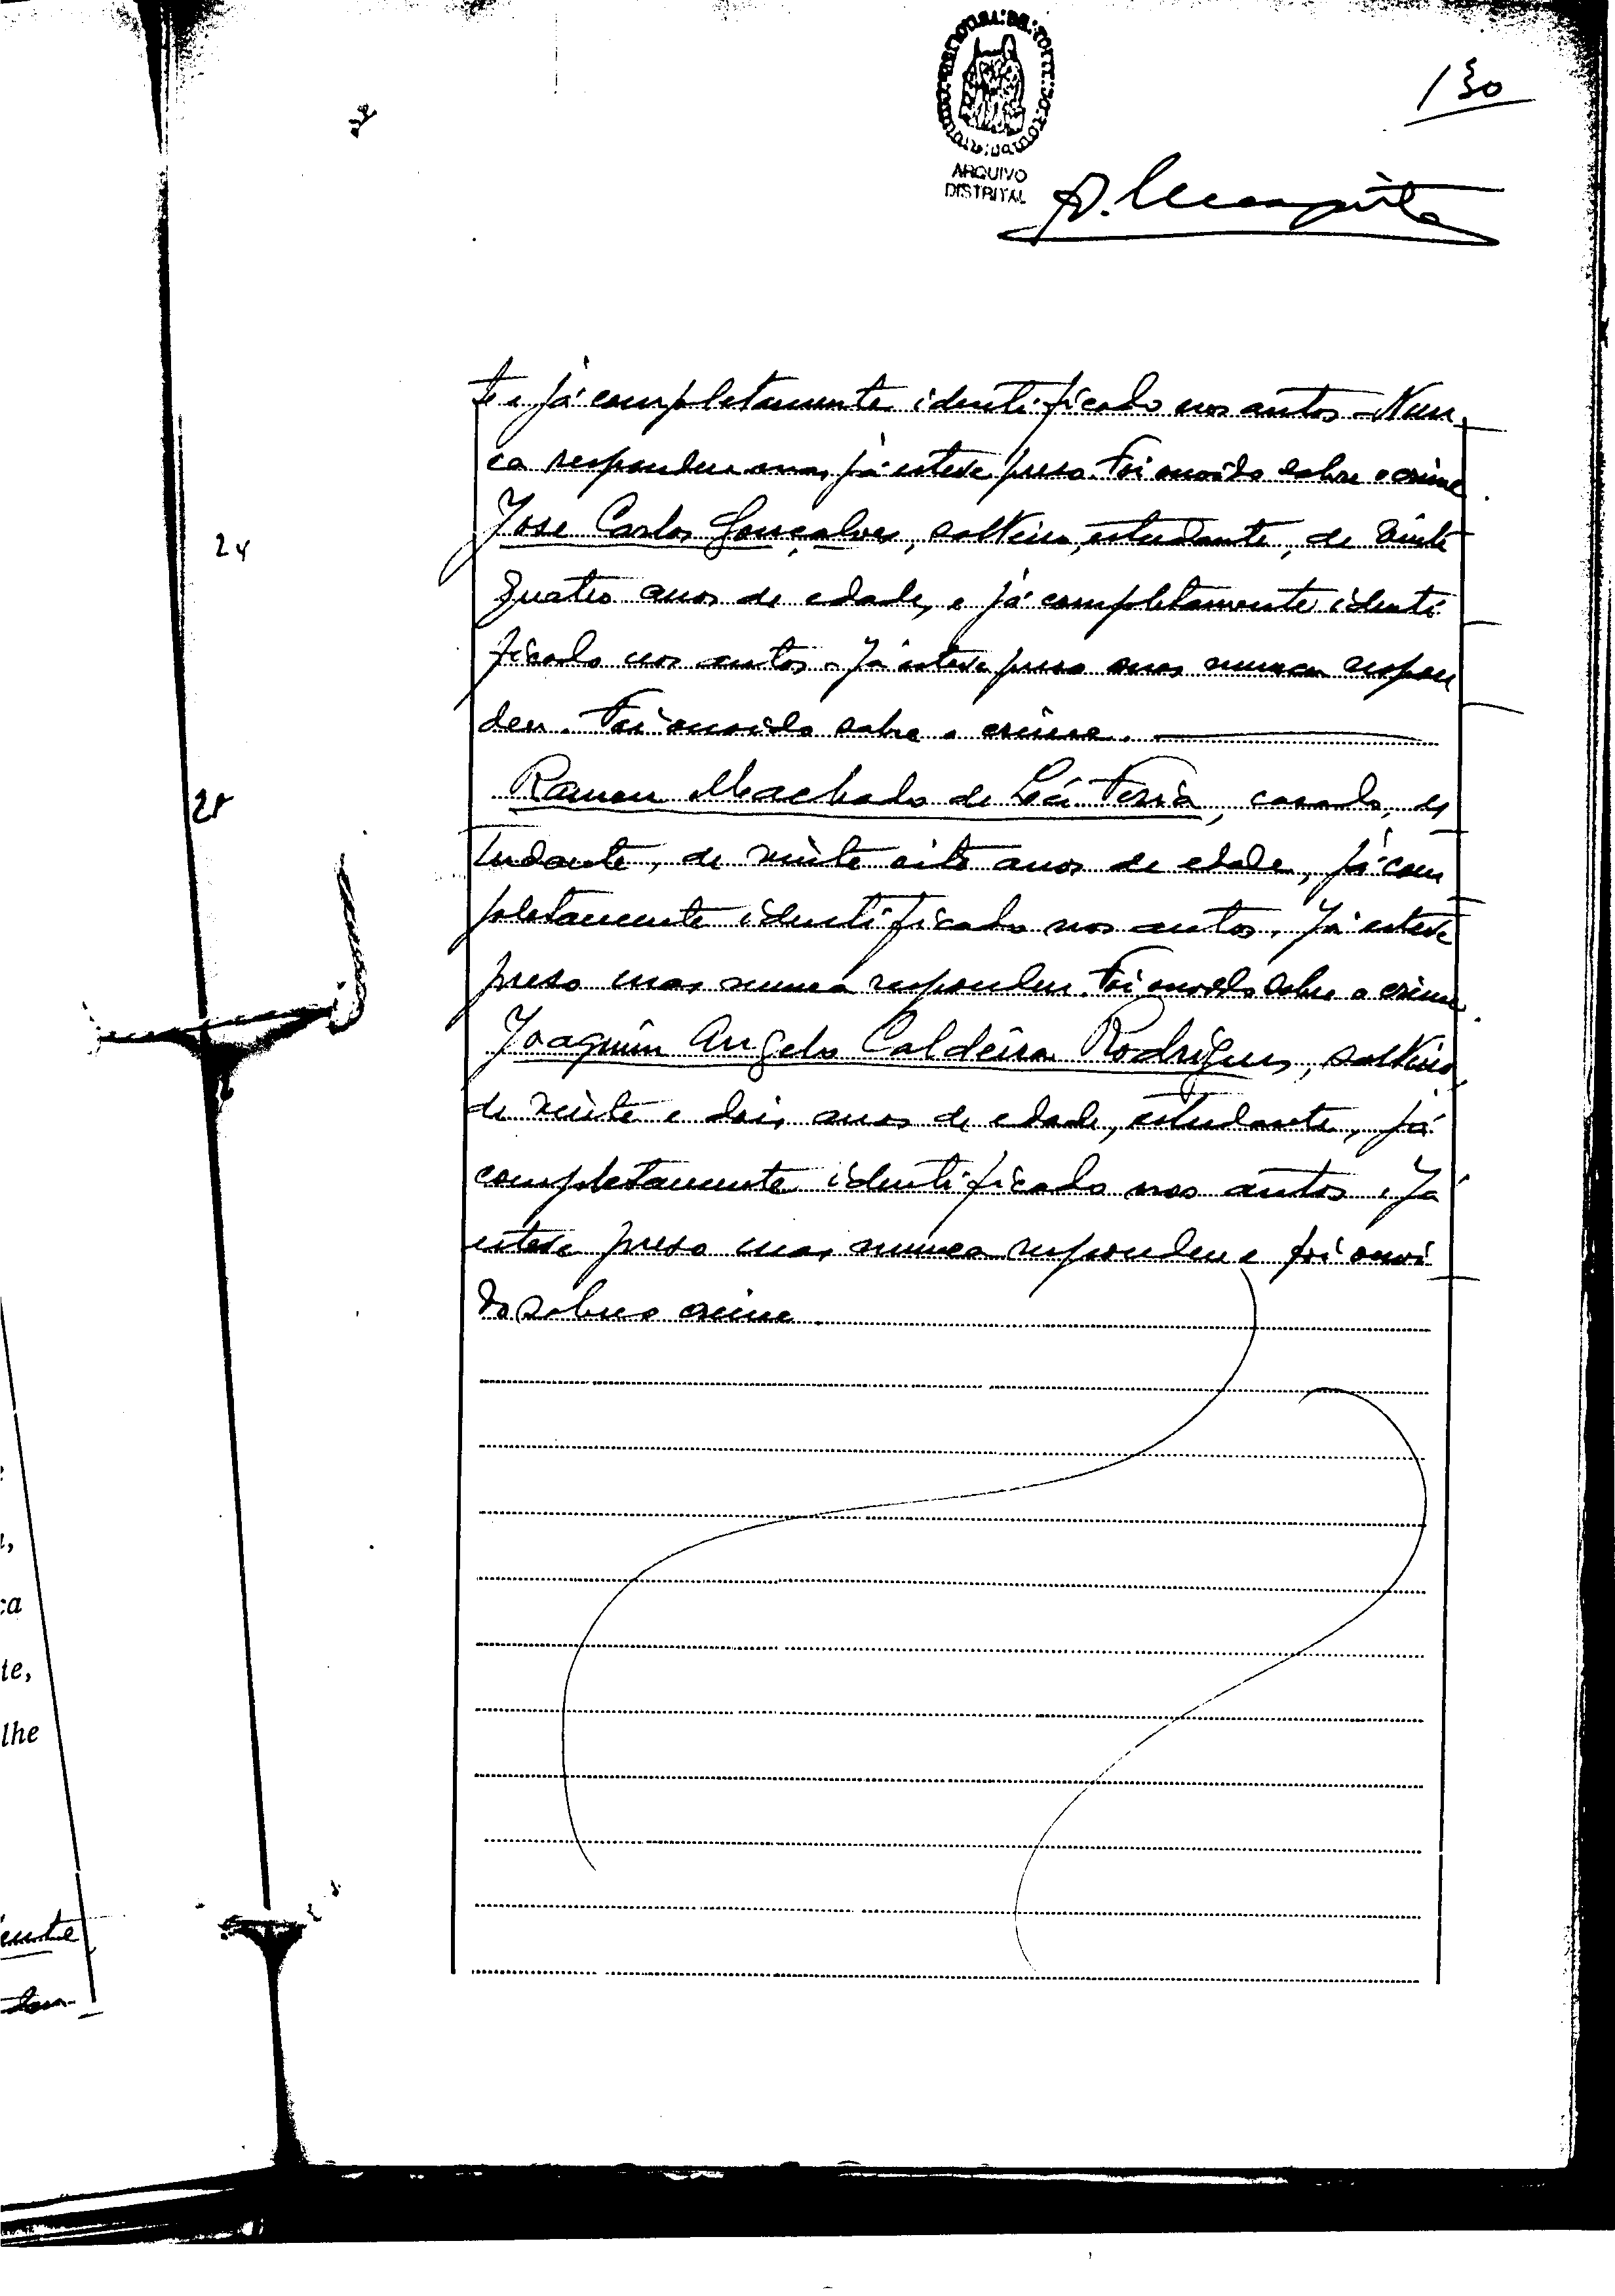 130
ARQUIVO
DISTRITAL
te e já completamente identificado nos autos - Nun
ca respondeu mas já esteve preso. Foi ouvido sobre o crime
José Carlos Gonçalves, solteiro, estudante, de vinte
quatro anos de edade, e já completamente identi
ficado nos autos - Já esteve preso mas nunca respon
deu. Foi ouvido sobre o crime.
24
Ramon Machado de La Feria, casado, es
tudante, de vinte oito anos de edade, já com
pletamente identificado nos autos. Já esteve
preso mas nunca respondeu. Foi ouvido sobre o crime.
Joaquim Angelo Caldeira Rodrigues, solteiro
de vinte e dois anos de edade, estudante, já
completamente identificado nos autos. Já
esteve preso mas nunca respondeu e foi ouvi
do sobre o crime
te,
lhe